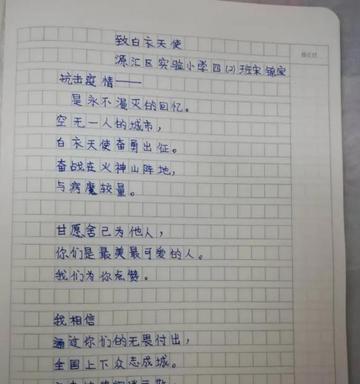 致白衣天使
源汇区实验小学四(2)班宋
抗击疫情——
是永不漫灭的回忆。
空无一人的城市，
白衣天使奋勇出征。
奋战在火神山阵地，
与病魔较量。
甘愿舍己为他人，
你们是最美最可爱的人。
我们为你点赞。
我相信
通过你们的无畏付出，
全国上下众志成城。